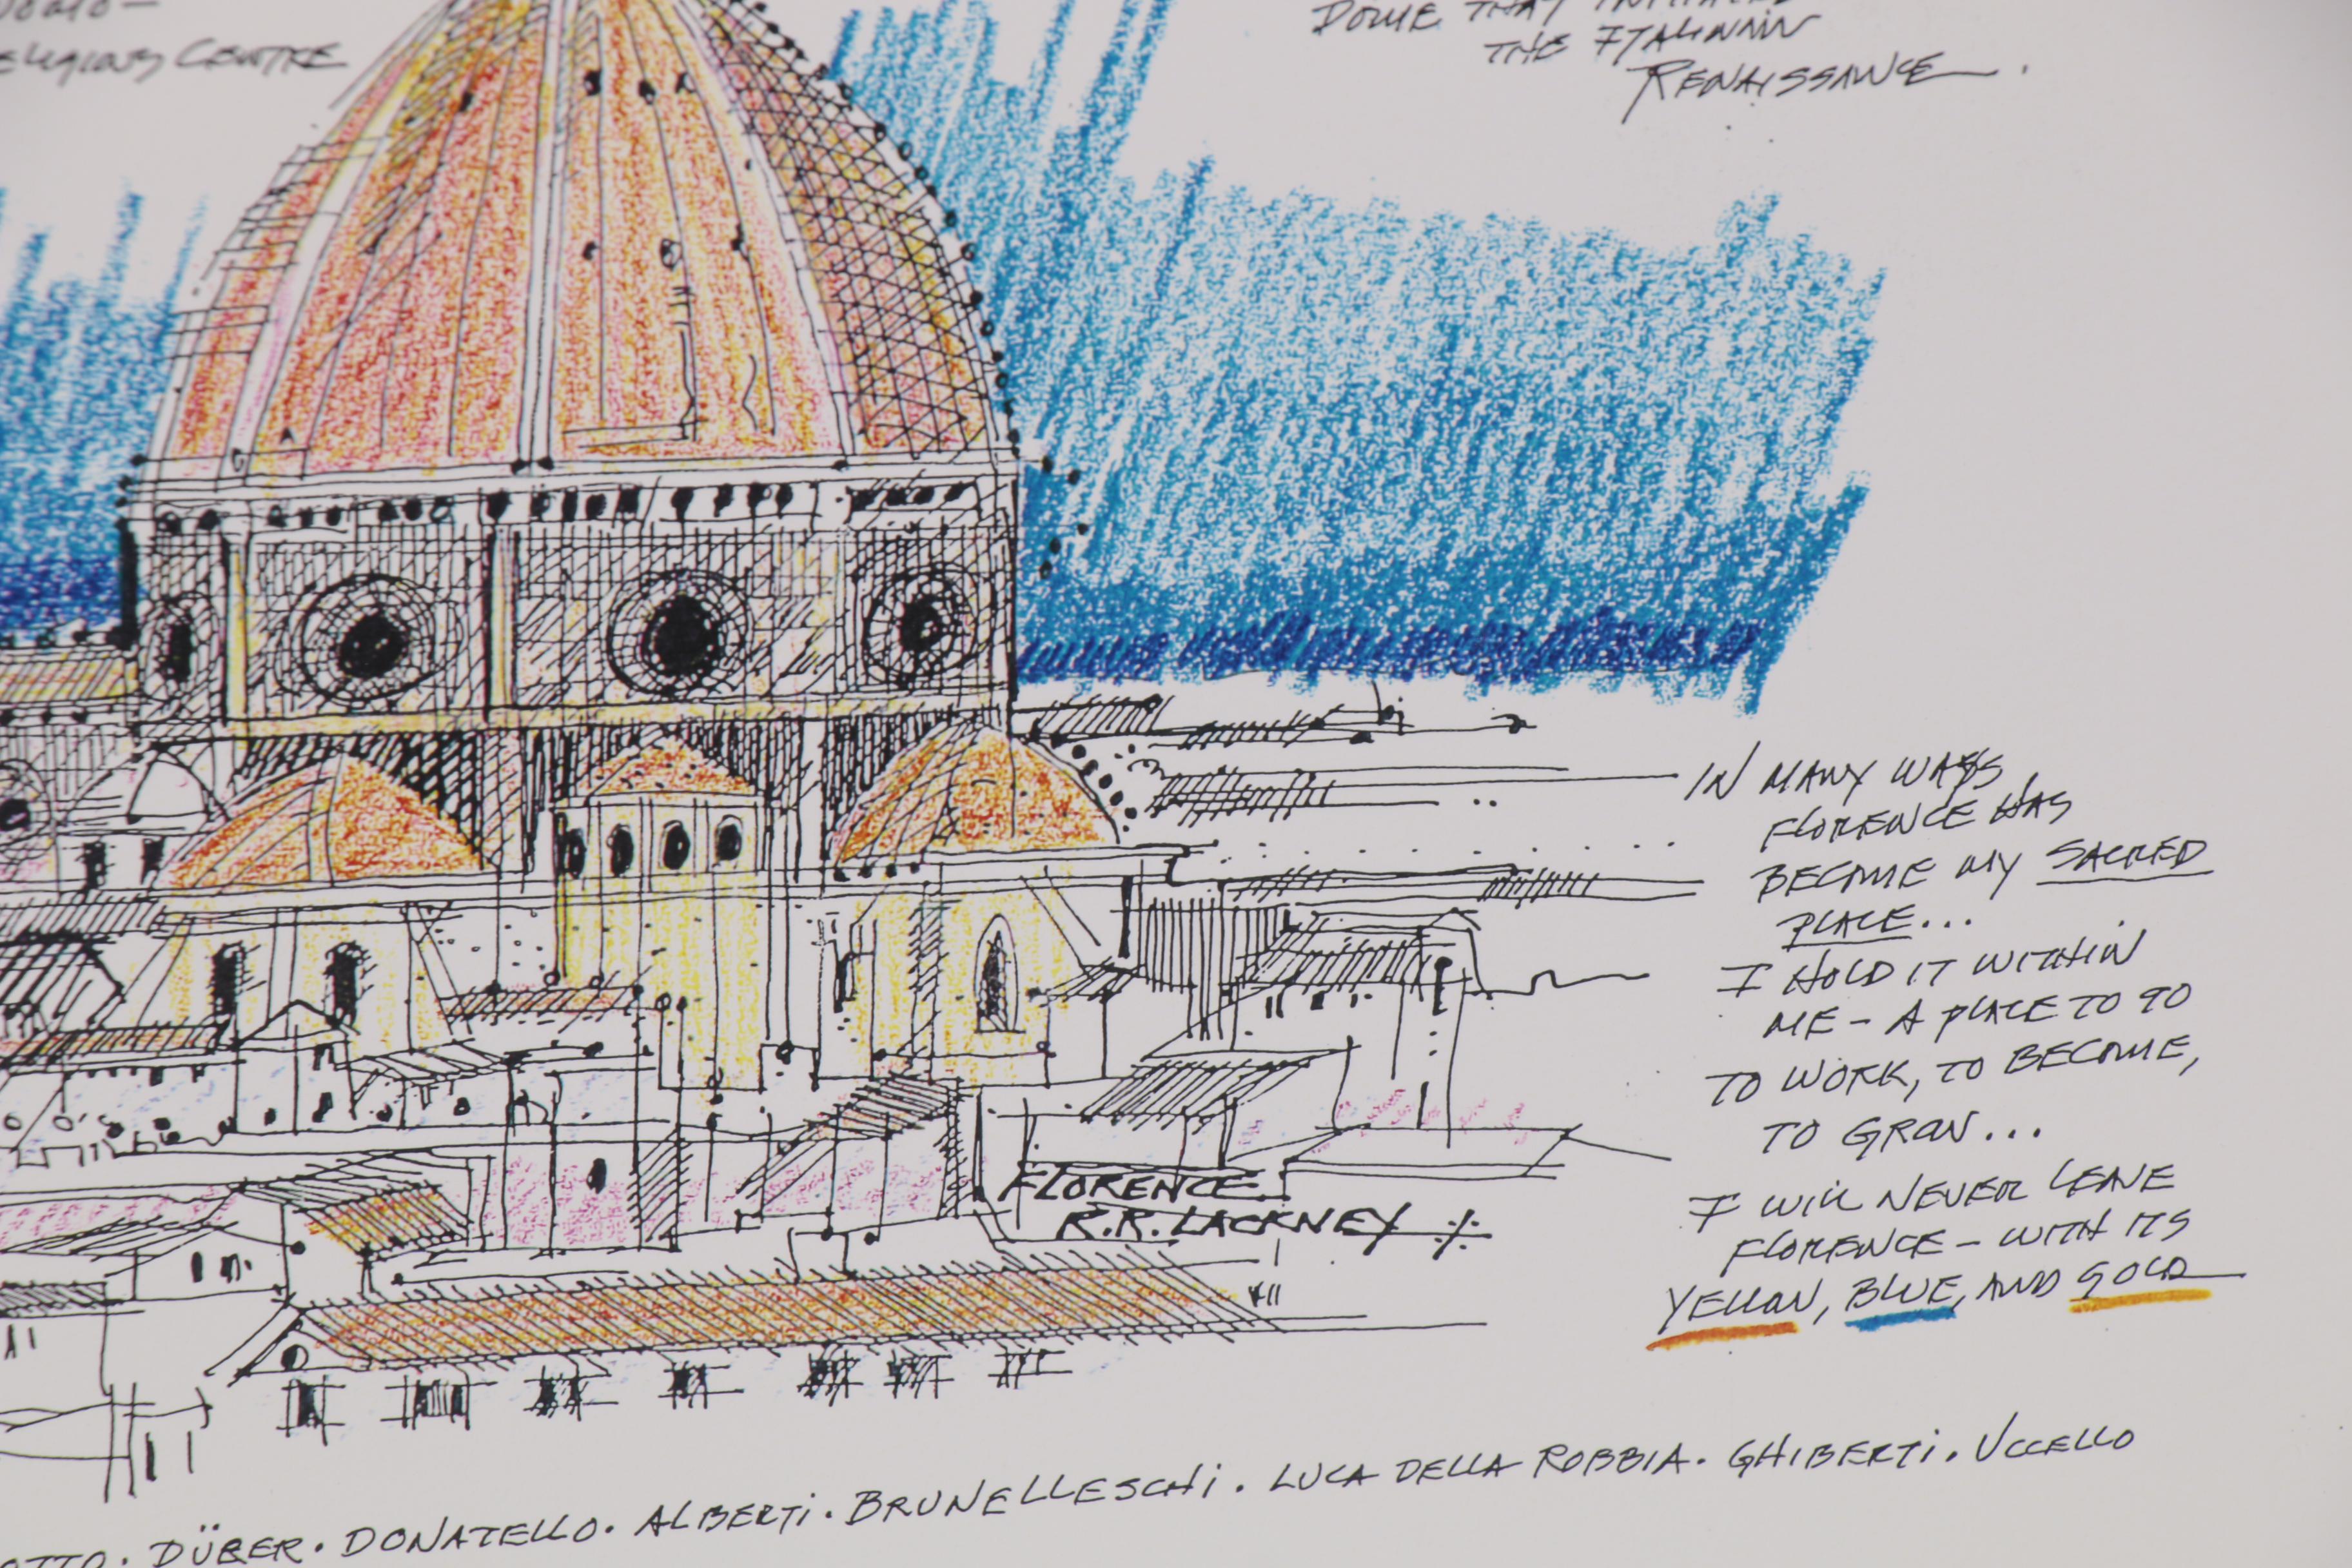 CENTRE
DOME THAT
THE ITALIANIAN
RENAISSANCE.
IN MANY WAYS
FLORENCE HAS
BECOME MY SACRED
PLACE...
I HOLD IT WITHIN
ME - A PLACE TO GO
TO WORK, TO BECOME,
TO GROW...
I WILL NEVER LEAVE
FLORENCE - WITH ITS
YELLOW, BLUE, AND GOLD
FLORENCE
R.R. LACKNEY
OTTO. DÜBER. DONATELLO. ALBERTI. BRUNELLESCHI. LUCA DELLA ROBBIA. GHIBERTI. UCCELLO